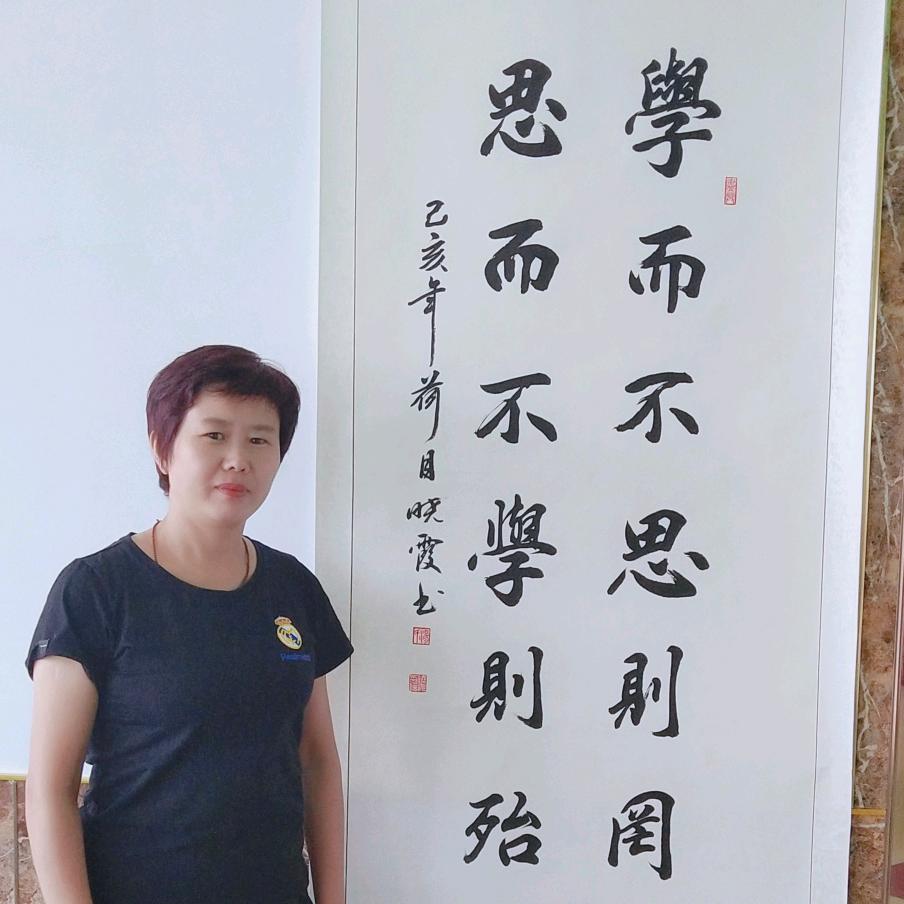 學而不思則罔
思而不學則殆
己亥年荷月晓霞书